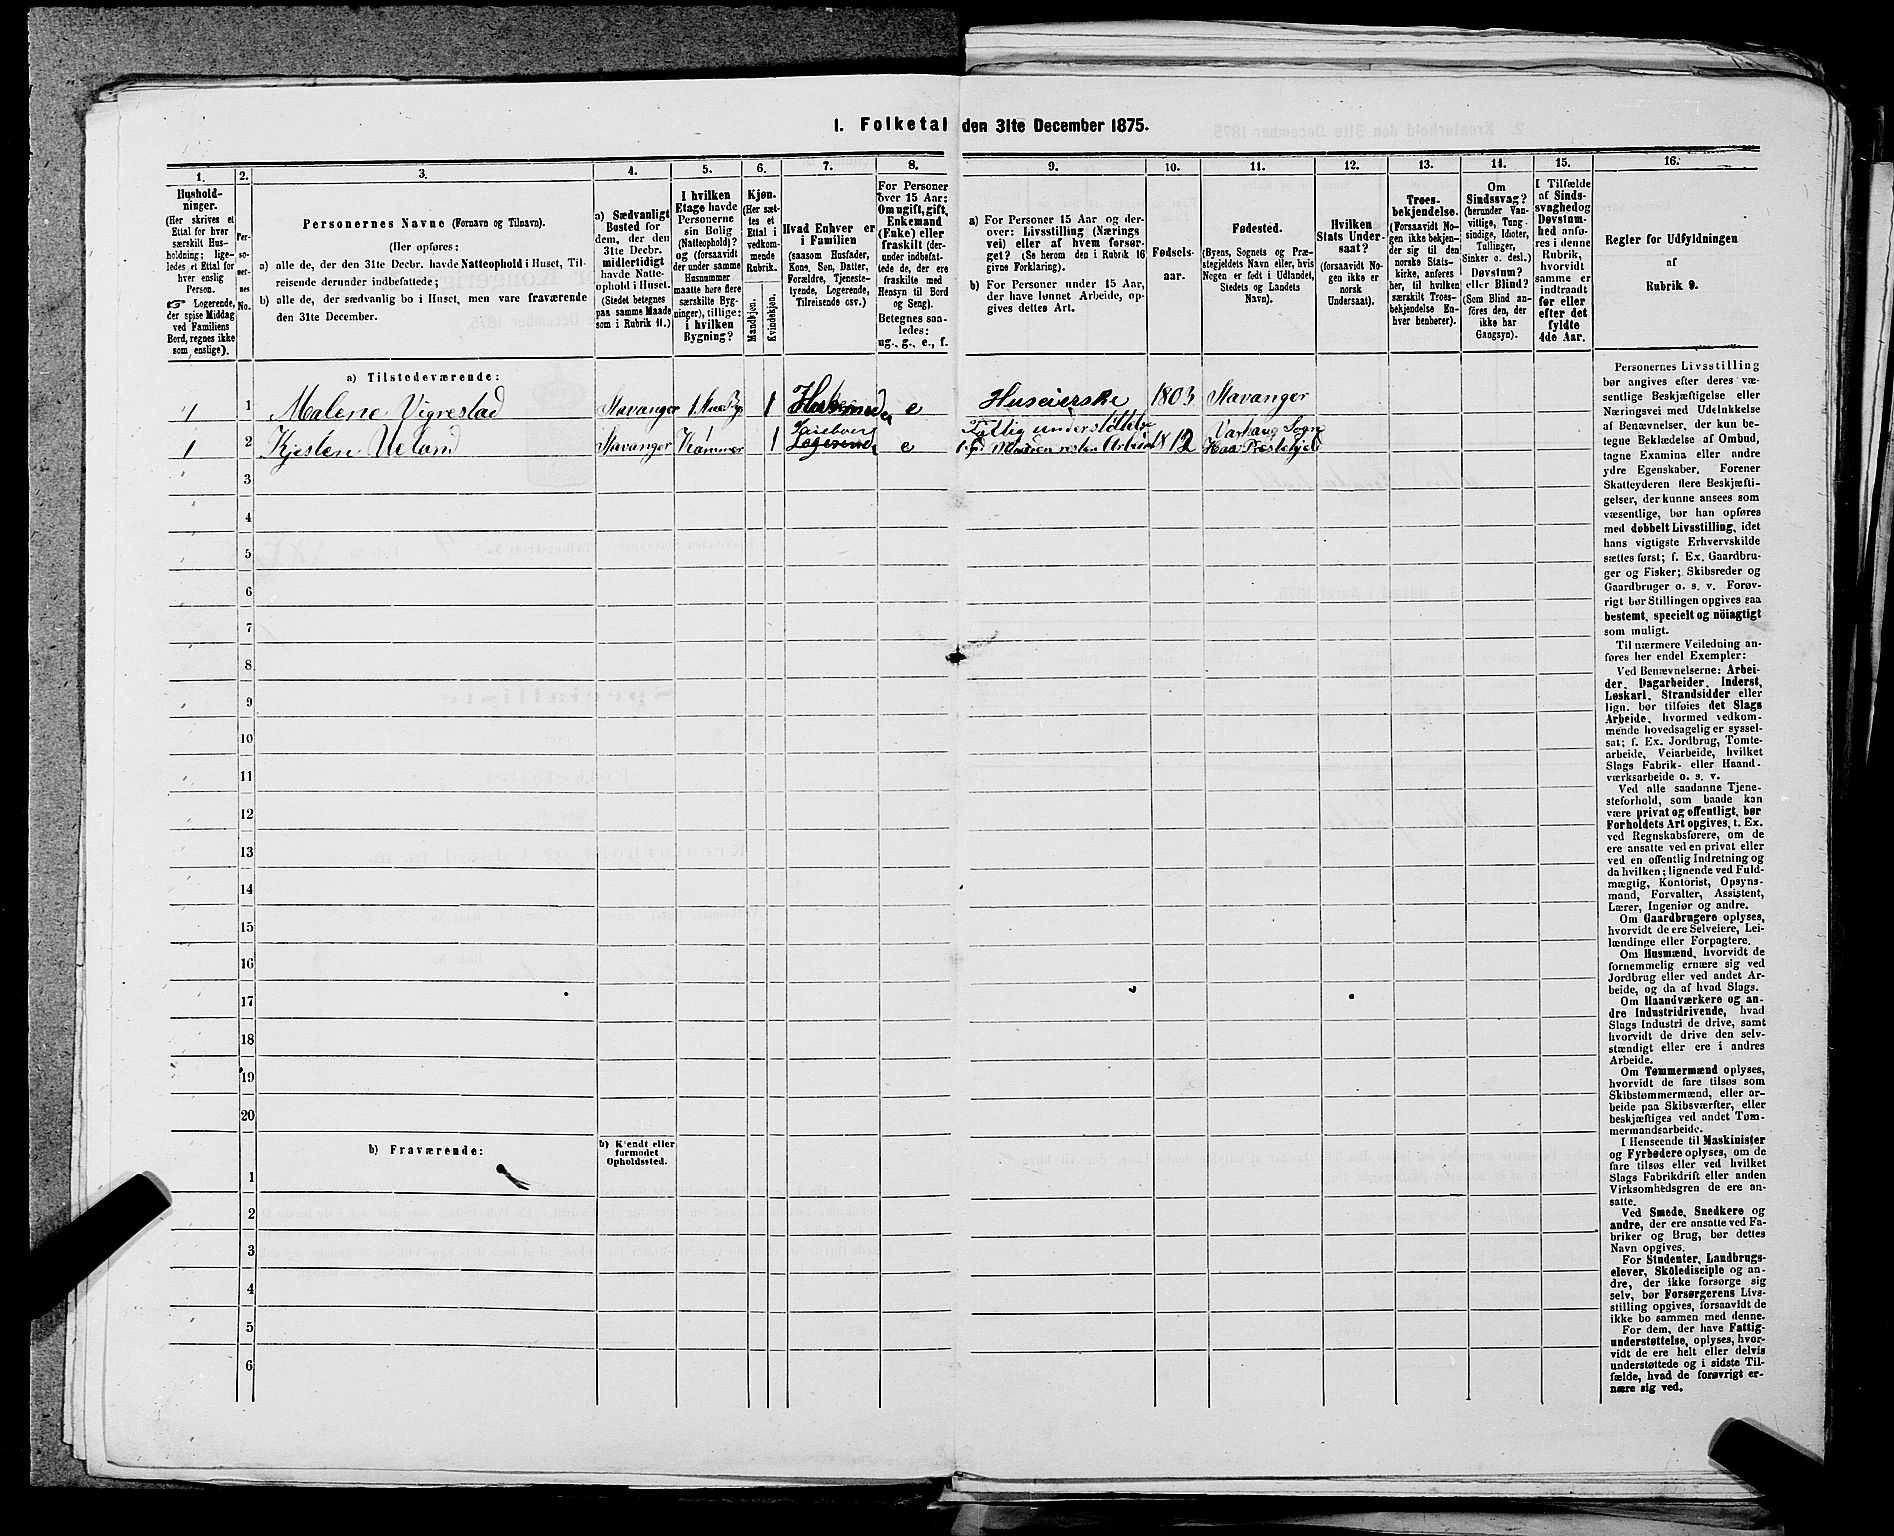 1. Folketal den 31te December 1875.
1.
2.
3.
4.
5.
6.
7.
8.
9.
10.
11.
12.
13.
14.
15.
16.
Hushold-
ninger.
(Her skrives et
Ettal for hver
særskilt Hus-
holdning; lige-
ledes et Ettal for
hver enslig
Person.
☞ Logerende,
der spise Middag
ved Familiens
Bord, regnes ikke
som enslige).
Per-
so-
ner-
nes
No.
Personernes Navne (Fornavn og Tilnavn).
(Her opføres:
a) alle de, der den 31te Decbr. havde Natteophold i Huset, Til-
reisende derunder indbefattede;
b) alle de, der sædvanlig bo i Huset, men vare fraværende
den 31te December.
a) Sædvanligt
Bosted for
dem, der den
31te Decbr.
midlertidigt
havde Natte-
ophold i Huset.
(Stedet betegnes
paa samme Maade
som i Rubrik 11.)
I hvilken
Etage havde
Personerne
sin Bolig
(Natteophold)?
og (forsaavidt
der under samme
Husnummer
maatte høre flere
særskilte Byg-
ninger), tillige:
i hvilken
Bygning?
Kjøn.
(Her sæt-
tes et
Ettal i
vedkom-
mende
Rubrik.
Mandkjøn.
Kvindekjøn.
Hvad Enhver er
i Familien
(saasom Husfader,
Kone, Søn, Datter,
Forældre, Tjeneste-
tyende, Logerende,
Tilreisende osv.)
For Personer
over 15 Aar:
Om ugift, gift,
Enkemand
(Enke) eller
fraskilt (der-
under indbefat-
tede de, der ere
fraskilte med
Hensyn til Bord
og Seng).
Betegnes saa-
ledes:
ug., g., e., f.
a) For Personer 15 Aar og der-
over: Livsstilling (Nærings
vei) eller af hvem forsør-
get? (Se herom den i Rubrik 16
givne Forklaring).
b) For Personer under 15 Aar,
der have lønnet Arbeide, op-
gives dettes Art.
Fødsels-
aar.
Fødested.
(Byens, Sognets og Præ-
stegjeldets Navn eller, hvis
Nogen er født i Udlandet,
Stedets og Landets
Navn).
Hvilken
Stats Under-
saat?
(forsaavidt No-
gen ikke er
norsk
Undersaat).
Troes-
bekjendelse.
(Forsaavidt No-
gen ikke bekjen-
der sig til den
norske Stats-
kirke, anføres
her, til hvilken
særskilt Troes-
bekjendelse En-
hver henhører).
Om
Sindssvag?
(herunder Van-
vittige, Tung-
sindige, Idioter,
Tullinger,
Sinker o. desl.)
Døvstum?
eller Blind?
(Som Blind an-
føres den, der
ikke har
Gangsyn).
I Tilfælde
af Sinds-
svaghed og
Døvstum-
hed anfø-
res i denne
Rubrik,
hvorvidt
samme er
indtraadt
før eller
efter det
fyldte
4de Aar.
Regler for Udfyldningen
af
Rubrik 9.
a) Tilstedeværende:
1 1 Malene Vigrestad Stavanger 1 e Huseierske 1803 Stavanger
1 2 Kjesten Ueland Stavanger Kammer 1 Logerende e Fattig understøttelse 1812 Varhaug Sogn
Haa Præstegjeld
3
4
5
6
7
8
9
10
11
12
13
14
15
16
17
18
19
20
b) Fraværende:
b) Kjendt eller
formodet
Opholdssted.
1
2
3
4
5
6
Personernes Livsstilling
bør angives efter deres væ-
sentlige Beskjæftigelse eller
Næringsvei med Udelukkelse
af Benævnelser, der kun be-
tegne Beklædelse af Ombud,
tagne Examina eller andre
ydre Egenskaber. Forener
Skatteyderen flere Beskjæfti-
gelser, der kunne ansees som
væsentlige, bør han opføres
med dobbelt Livsstilling, idet
hans vigtigste Erhvervskilde
sættes først; f. Ex. Gaardbru-
ger og Fisker; Skibsreder og
Gaardbruger o. s. v. Forøv-
rigt bør Stillingen opgives saa
bestemt, specielt og nöiagtigt
som muligt.
Til nærmere Veiledning an-
føres her endel Exempler:
Ved Benævnelserne: Arbei-
der, Dagarbeider, Inderst,
Løskarl, Strandsidder eller
lign. bør tilføies det Slags
Arbeide, hvormed vedkom-
mende hovedsagelig er syssel-
sat; f. Ex. Jordbrug, Tomte-
arbeide, Veiarbeide, hvilket
Slags Fabrik- eller Haand-
værksarbeide o. s. v.
Ved alle saadanne Tjene-
steforhold, som baade kan
være privat og offentligt, bør
Forholdets Art opgives, t. Ex.
ved Regnskabsførere, om de
ere ansatte ved en privat eller
ved en offentlig Indretning og
da hvilken; lignende ved Fuld-
mægtig, Kontorist, Opsyns-
mand, Forvalter, Assistent,
Lærer, Ingeniør og andre.
Om Gaardbrugere oplyses,
hvorvidt de ere Selveiere, Lei-
lændinge eller Forpagtere.
Om Husmænd, hvorvidt de
fornemmelig ernære sig ved
Jordbrug eller ved andet Ar-
beide, og da af hvad Slags.
Om Haandværkere og an-
dre Industridrivende, hvad
Slags Industri de drive, samt
hvorvidt de drive den selv-
stændigt eller ere i andres
Arbeide.
Om Tømmermænd oplyses,
hvorvidt de fare tilsøs som
Skibstømmermænd, eller ar-
beide paa Skibsværfter, eller
beskjæftiges ved andet Tøm-
mermandsarbeide.
I Henseende til Maskinister
og Fyrbødere oplyses, om de
fare tilsøs eller ved hvilket
Slags Fabrikdrift eller anden
Virksomhedsgren de ere an-
satte.
Ved Smede, Snedkere og
andre, der ere ansatte ved Fa-
briker og Brug, bør dettes
Navn opgives.
For Studenter, Landbrugs-
elever, Skoledisciple og an-
dre, der ikke forsørge sig
selv, bør Forsørgerens Livs-
stilling opgives, forsaavidt de
ikke bo sammen med denne.
For dem, der have Fattig-
understøttelse, oplyses, hvor-
vidt de ere helt eller delvis
understøttede og i sidste Til-
fælde, hvad de forøvrigt er-
nære sig ved.